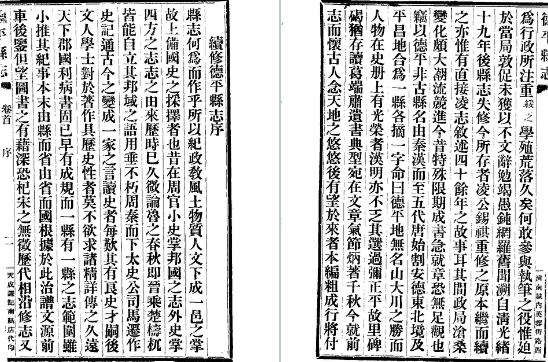 續修德平縣志序
縣志何爲而作乎所以紀政教風土物質人文下成一邑之掌
故上備國史之採擇者也昔在周官小史掌邦國之志外史掌
四方之志志之由來歷時已久微論魯之春秋即晉乘楚檮杌
皆能自立其邦域之語用垂不朽周秦而下太史公司馬遷作
史記通古今之變成一家之言讀史者每歎其有良史才嗣後
文人學士對於著作具歷史性者莫不欲求諸精詳傳之久遠
天下郡國利病書固已早有成規而一縣有一縣之志範圍雖
小推其紀事本末由縣而省由省而國根據於此治譜文源前
車後鑒但望圖書之有藉深恐杞宋之無徵歷代相沿修志又
平縣志 卷首 序 一
德平縣志
爲行政所注重綏之學殖荒落久矣何敢參與執筆之役惟廹
於當局敦促未獲以不文辭勉竭愚鈍網羅舊聞溯自清光緒
十九年後縣志失修今所存者凌公錫祺重修之原本繼而續
之亦惟有直接凌志敘述四十餘年之故事耳其間政局滄桑
變化頗大潮流競進今昔特殊限期成書急就章恐無足觀也
竊以德平非古縣名由秦漢而至五代唐始割安德東北境及
平昌地合爲一縣各摘一字命曰德平地無名山大川之勝而
人物在史册上有光榮者漢明亦不乏其選過彌正平故里碑
碣猶存讀葛端肅遺書典型宛在文章氣節炳著千秋今就前
志而懷古人念天地之悠悠後有望於來者本編粗成行將付